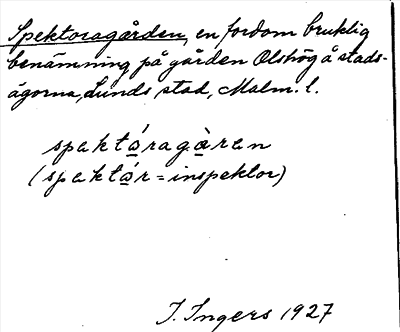 Spektoragården, en fordom bruklig
benämning på gården Olshög å stads-
ägorna, Lunds stad, Malm. l.
spektåragåren
(spektår = inspektor)
I. Ingers 1927